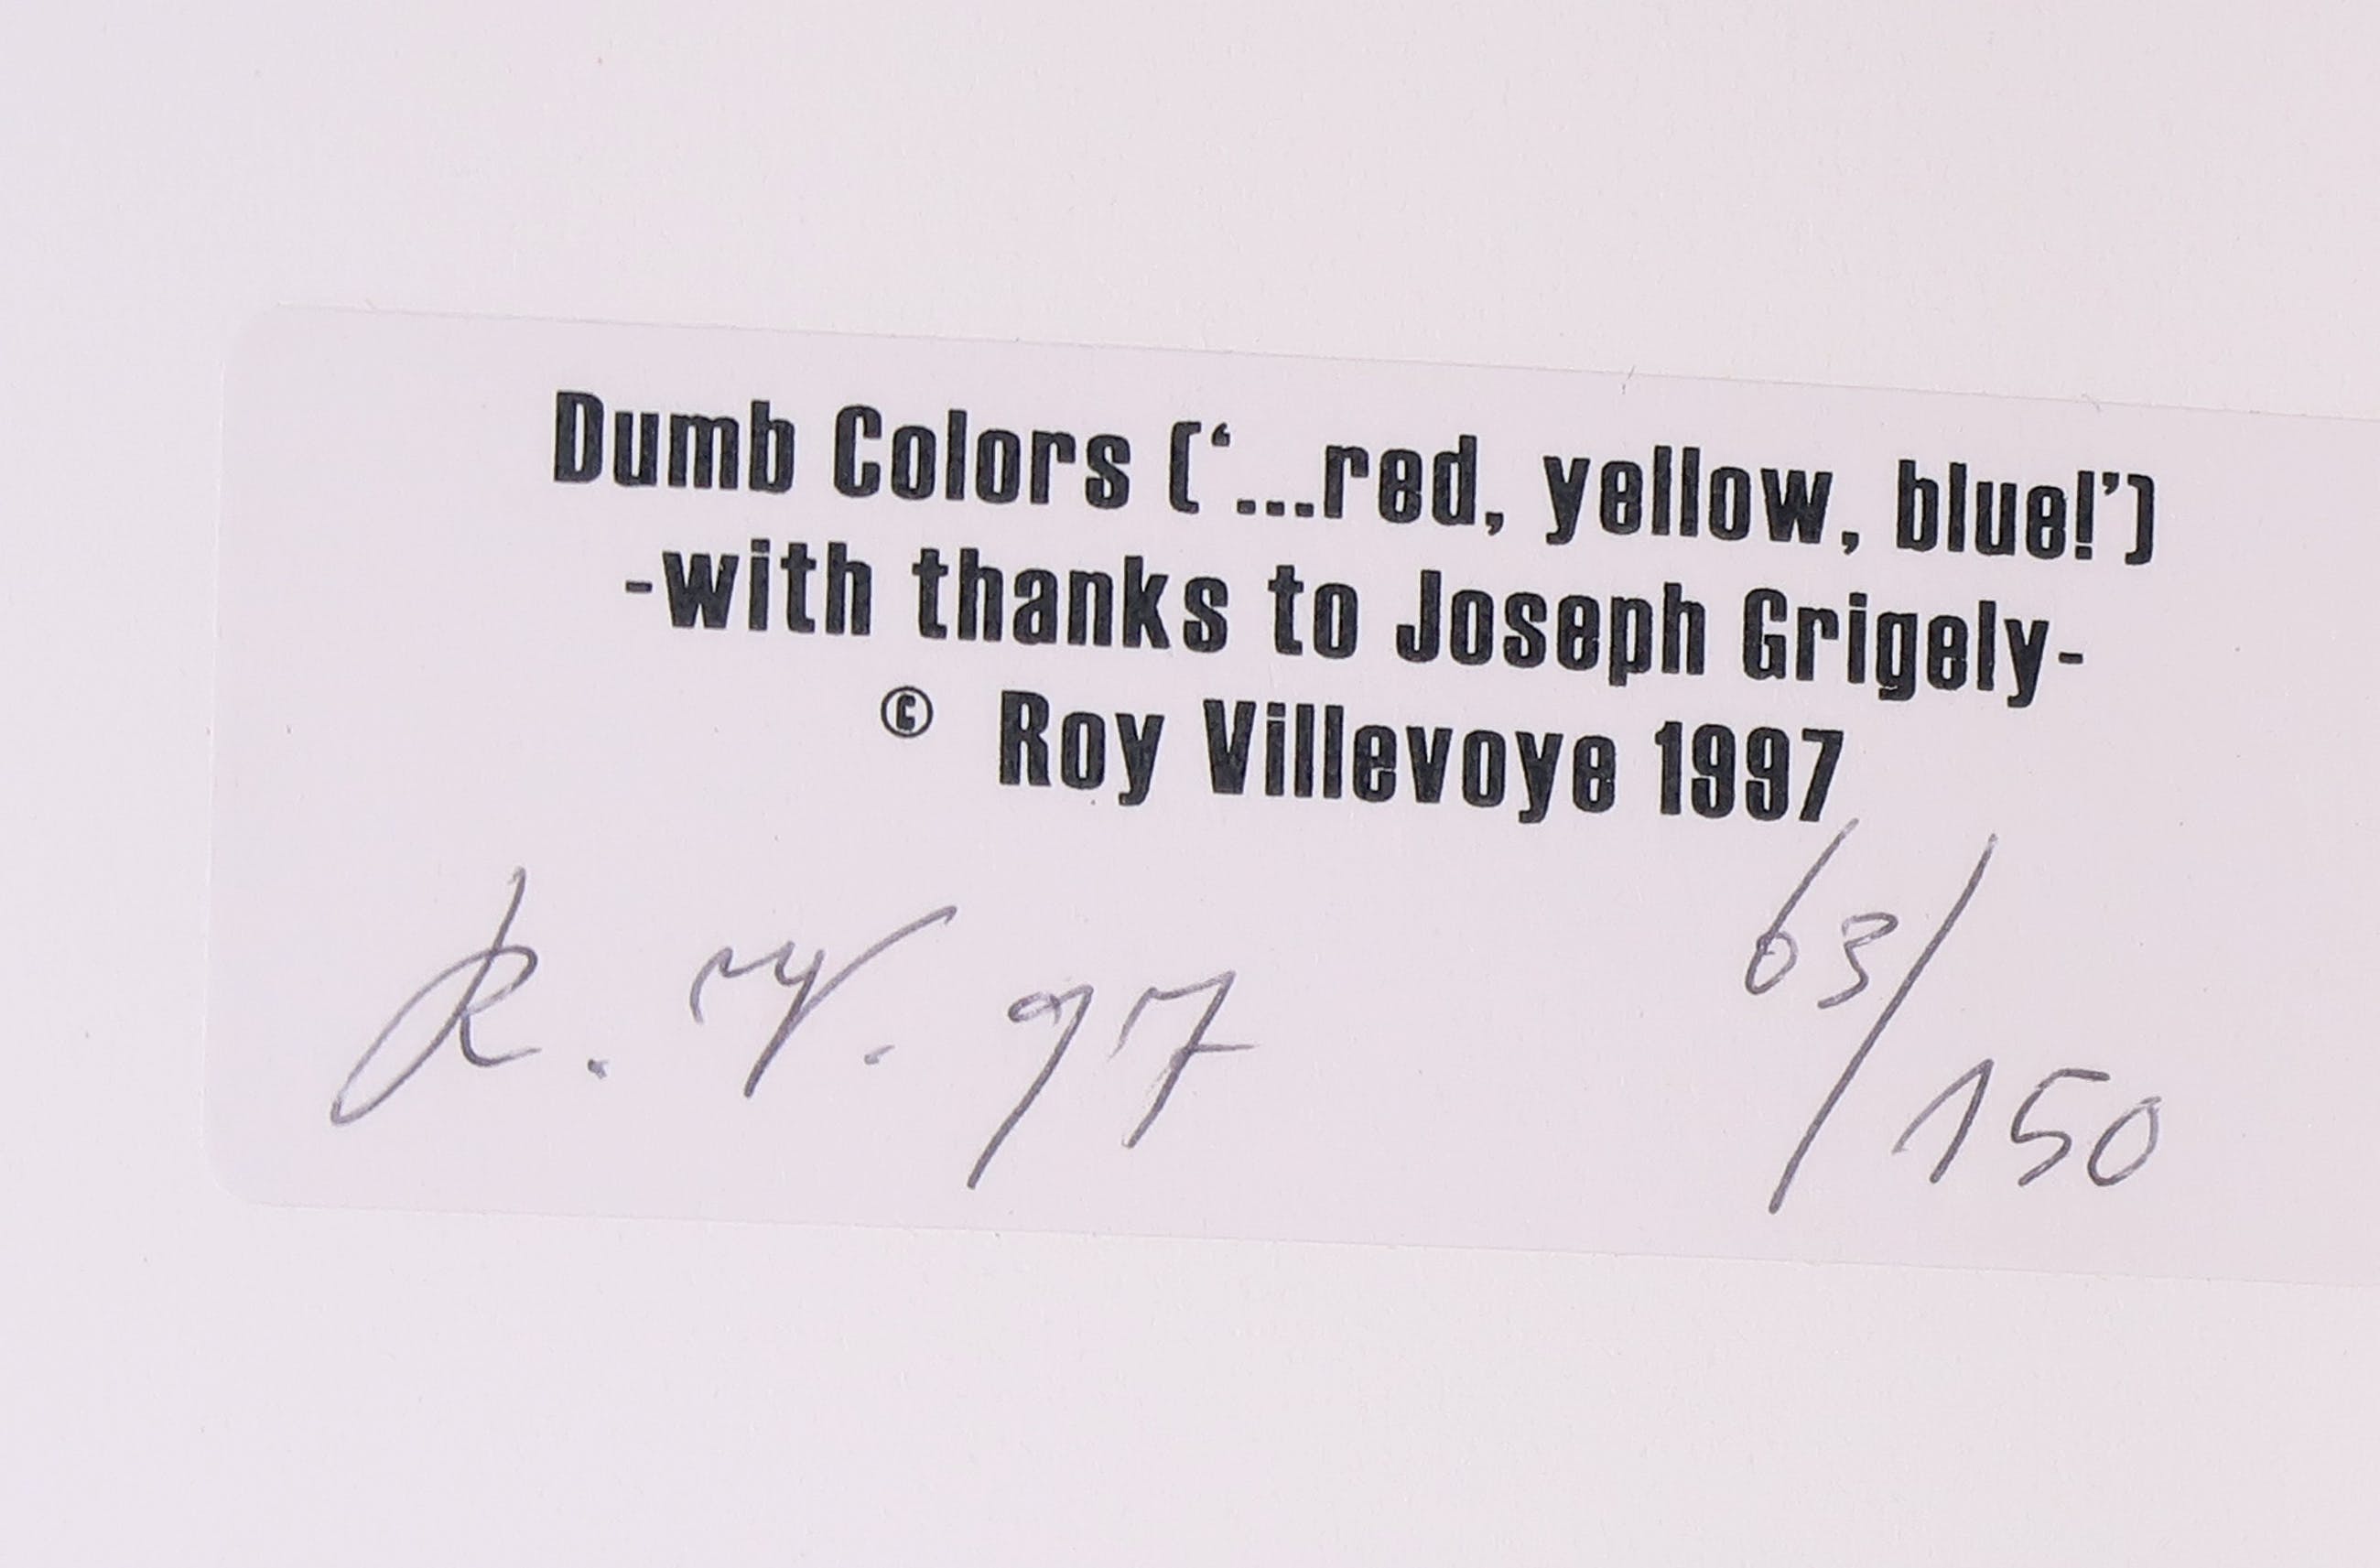 Dumb Colors (‘...red, yellow, blue!’)
-with thanks to Joseph Grigely-
© Roy Villevoye 1997
R. V. 97 63/150